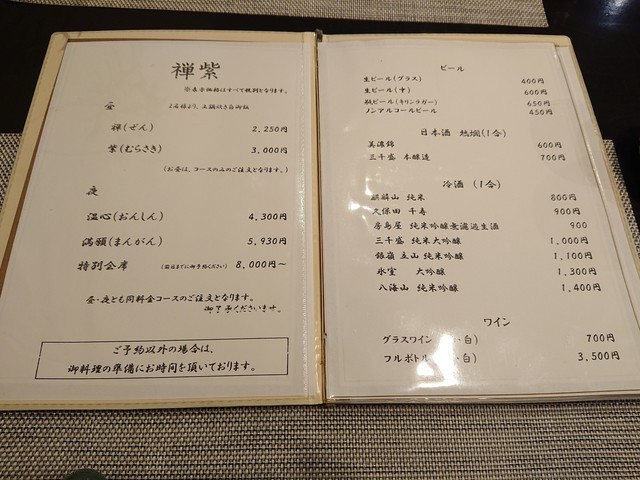 禅紫
※表示価格はすべて税別となります。
昼 2名様より、土鍋炊き白御飯
禅(ぜん) 2,250円
紫(むらさき) 3,000円
(お昼は、コースのみのご注文となります。)
夜
温心(おんしん) 4,300円
満願(まんがん) 5,930円
特別会席 (前日までに御予約ください) 8,000円～
昼・夜とも同料金コースのご注文となります。
御了承くださいませ。
ご予約以外の場合は、
御料理の準備にお時間を頂いております。
ビール
生ビール(グラス) 400円
生ビール(中) 600円
瓶ビール(キリンラガー) 650円
ノンアルコールビール 450円
日本酒 熱燗(1合)
美濃錦 600円
三千盛 本醸造 700円
冷酒 (1合)
麒麟山 純米 800円
久保田 千寿 900円
房島屋 純米吟醸無濾過生酒 900
三千盛 純米大吟醸 1,000円
銀嶺 立山 純米吟醸 1,100円
氷室 大吟醸 1,300円
八海山 純米吟醸 1,400円
ワイン
グラスワイン ・白) 700円
フルボトル ・白) 3,500円